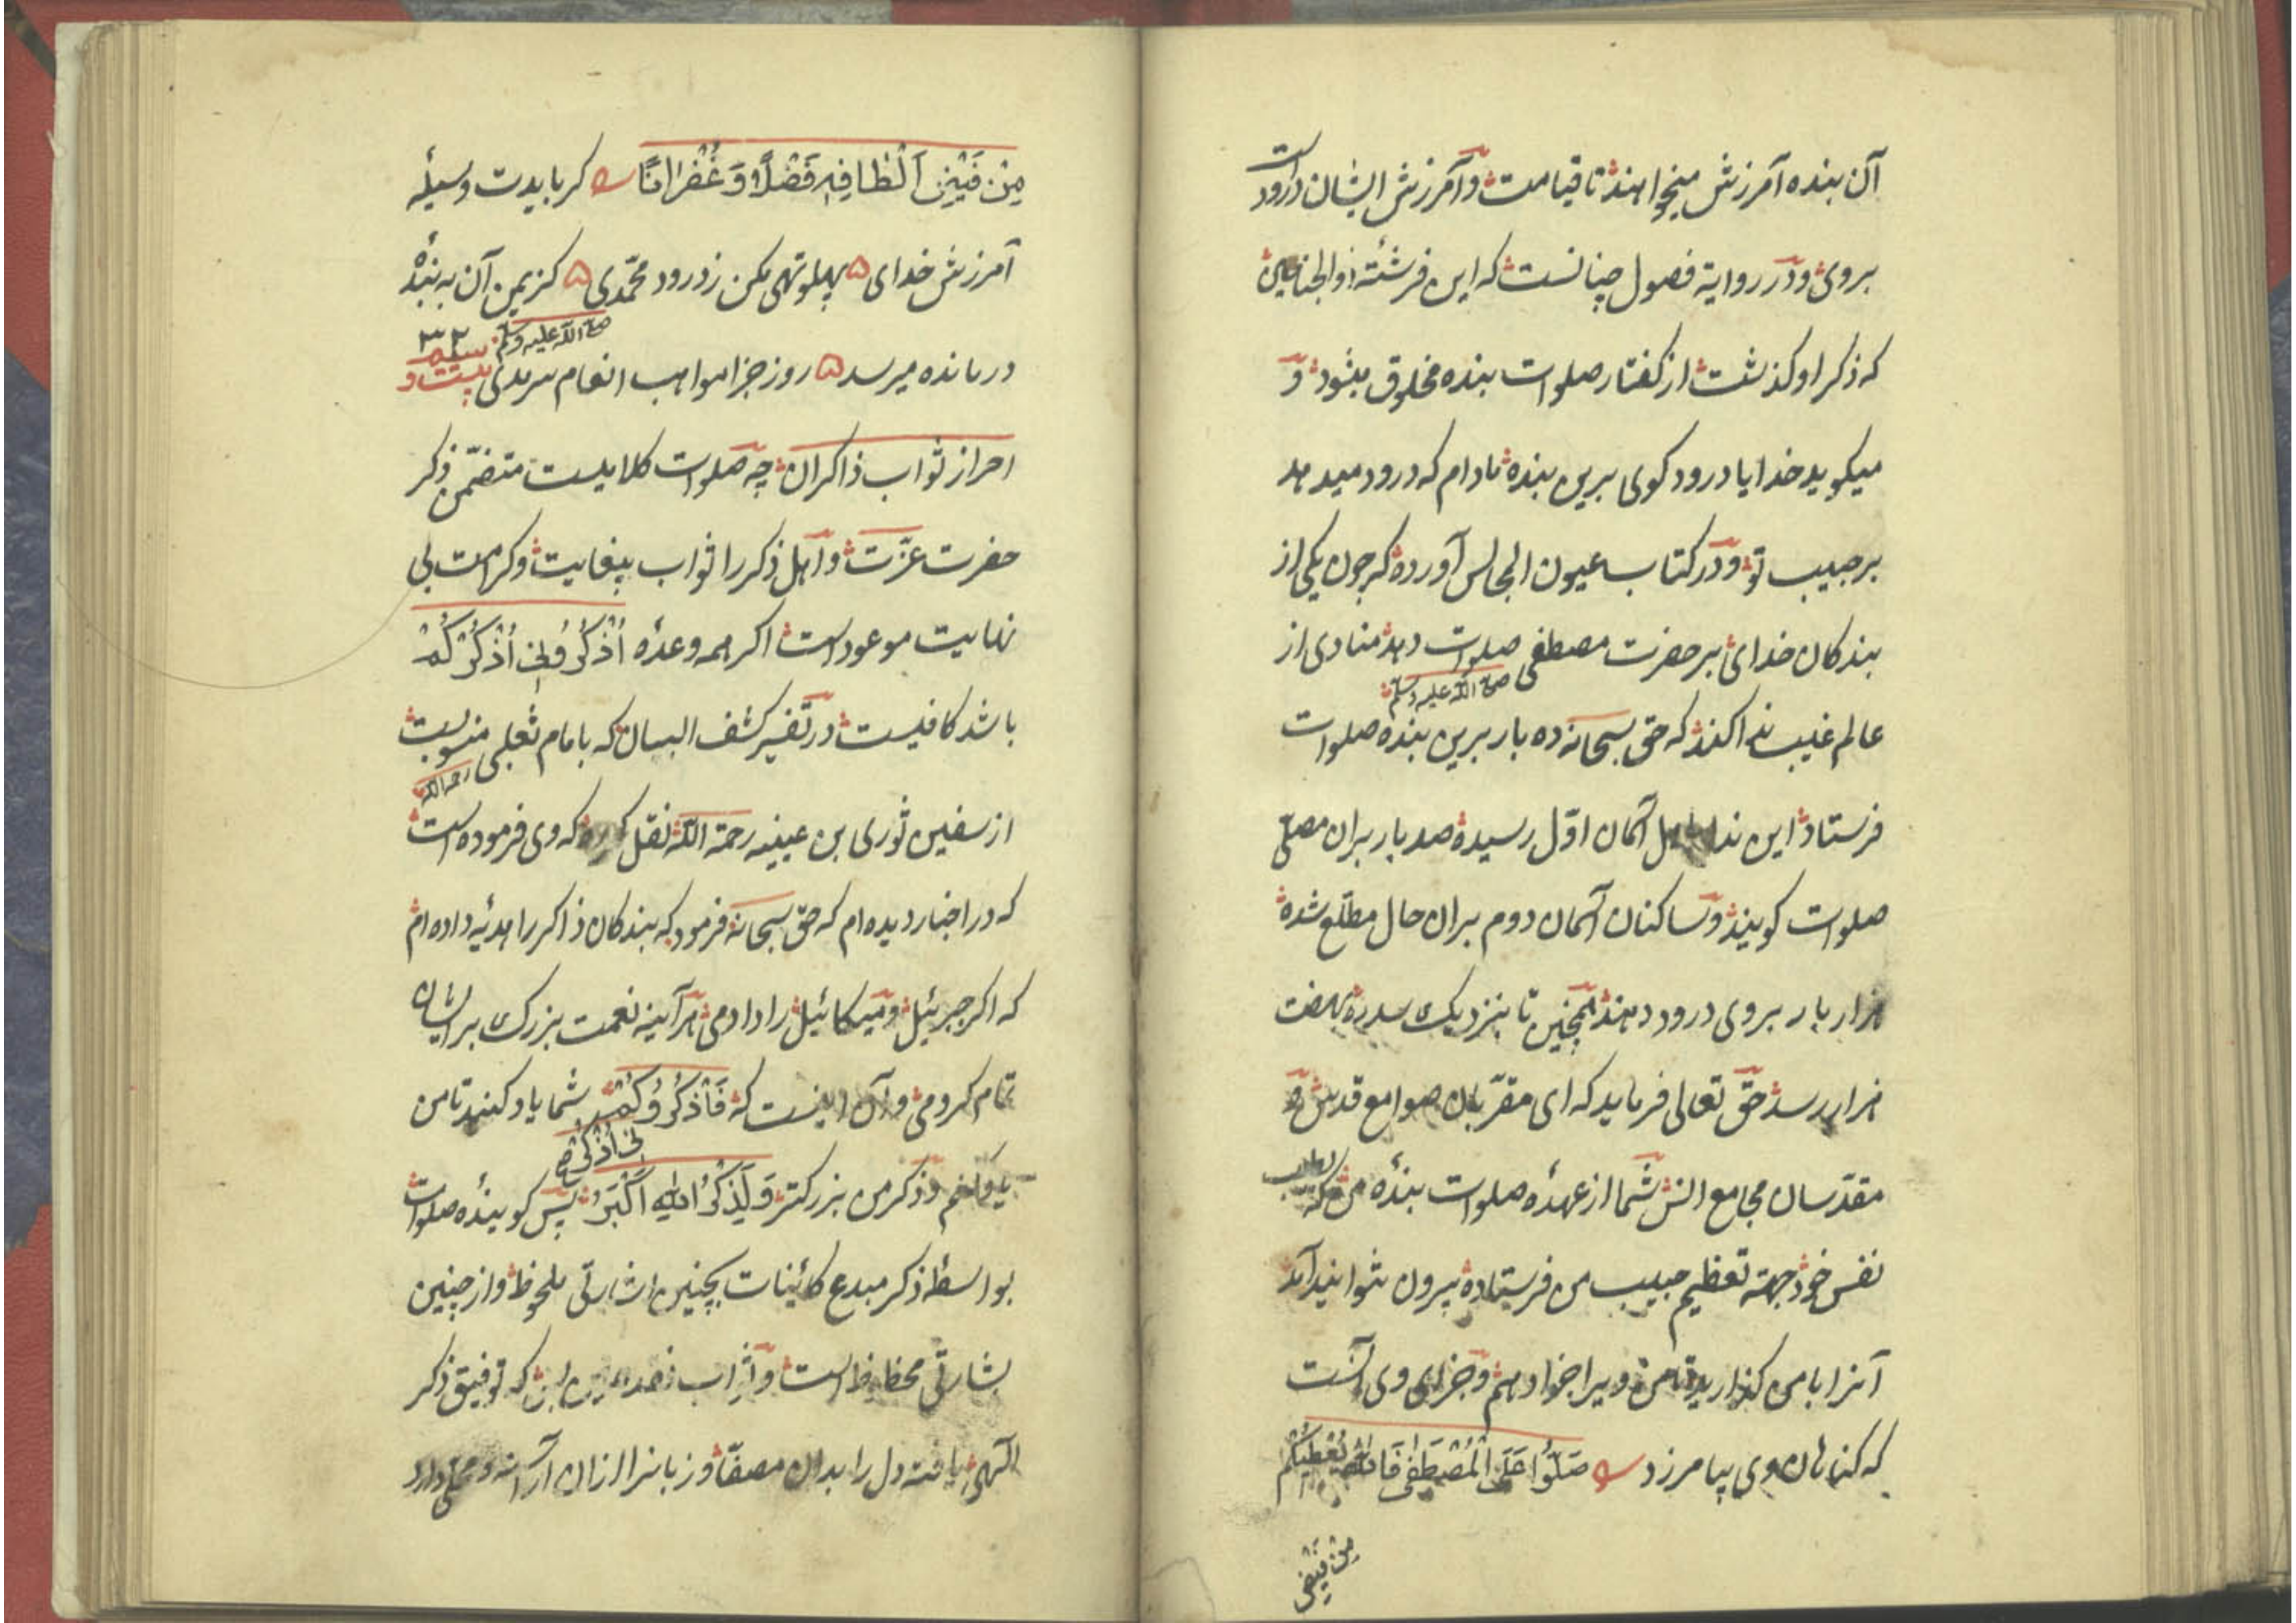 آن بنده آمرزش میخواهند تا قیامت و آمرزش ایشان درود است
بروی و در روایة فصول چنانست که این فرشته ذوالجناحین
که ذکر او کذشت از کفتار صلوات بنده مخلوق میشود و
میکوید خدایا درود کوی برین بنده مادام که درود میدهد
بر حبیب تو و در کتاب عیون المجالس آورده که چون یکی از
بندکان خدای بر حضرت مصطفی صلوات دهد منادی از
صلی الله علیه وسلم
عالم غیب ندا کند که حق سبحانه ده بار برین بنده صلوات
فرستاد این ندا باهل آسمان اوّل رسیده صد بار بران مصلّی
صلوات کویند و ساکنان آسمان دوم بران حال مطّلع شده
هزار بار بروی درود دهند همچنین تا بنزدیک سدره بهفت
هزار رسد حق تعالی فرماید که ای مقرّبان صوامع قدس و
مقدّسان مجامع انس شما از عهدهٔ صلوات بندهٔ من که
نفس خود جهة تعظیم حبیب من فرستاده بیرون نتوانید آمد
آنرا بامن کذارید تا من ویرا جزا دهم و جزای وی آنست
که کناهان وی بیامرزد صَلُّوا عَلَی الْمُصْطَفٰی فَاللّٰهُ یُعْطِیكُم
مِنْ فَیْضِ
مِنْ فَیْضِ اَلْطَافِهِ فَضْلًا وَ غُفْرَانًا کر بایدت وسیلهٔ
آمرزش خدای ۵ پهلو تهی مکن ز درود محمّدی ۵ کز یمن آن به بندهٔ
درمانده میرسد ۵ روز جزا مواهب انعام سرمدی بیست و سیم
صلی الله علیه وسلم
٢٣
احراز ثواب ذاکران چه صلوات کلامیست متضمّن ذکر
حضرت عزّت و اهل ذکر را ثواب بیغایت و کرامت بی
نهایت موعود است اکر همه وعدهٔ اُذْكُرُونِی اَذْكُرْكُمْ
باشد کافیست در تفسیر کشف البیان که بامام ثعلبی منسوبست
رحمه الله
از سفین ثوری بن عیینه رحمة الله نقل کرده که وی فرموده است
که در اخبار دیده ام که حق سبحانه فرمود که بندکان ذاکر را هدیه داده ام
که اکر جبرئیل و میکائیل را دادمی هرآینه نعمت بزرک بر ایشان
تمام کردمی و آن اینست که فَاذْكُرُو شما یاد کنید تا من
نِی اَذْكُرْكُمْ
یاد کنم و ذکر من بزرکتر وَلَذِكْرُ اللّٰهِ اَكْبَرُ پس کویندهٔ صلوات
بواسطهٔ ذکر مبدع کائنات بچنین اشارتی ملحوظ و از چنین
بشارتی محظوظ است و ثواب که توفیق ذکر
الٓهی یافته دل را بدان مصفّا و زبانرا ازان آراسته و محلّی دارد